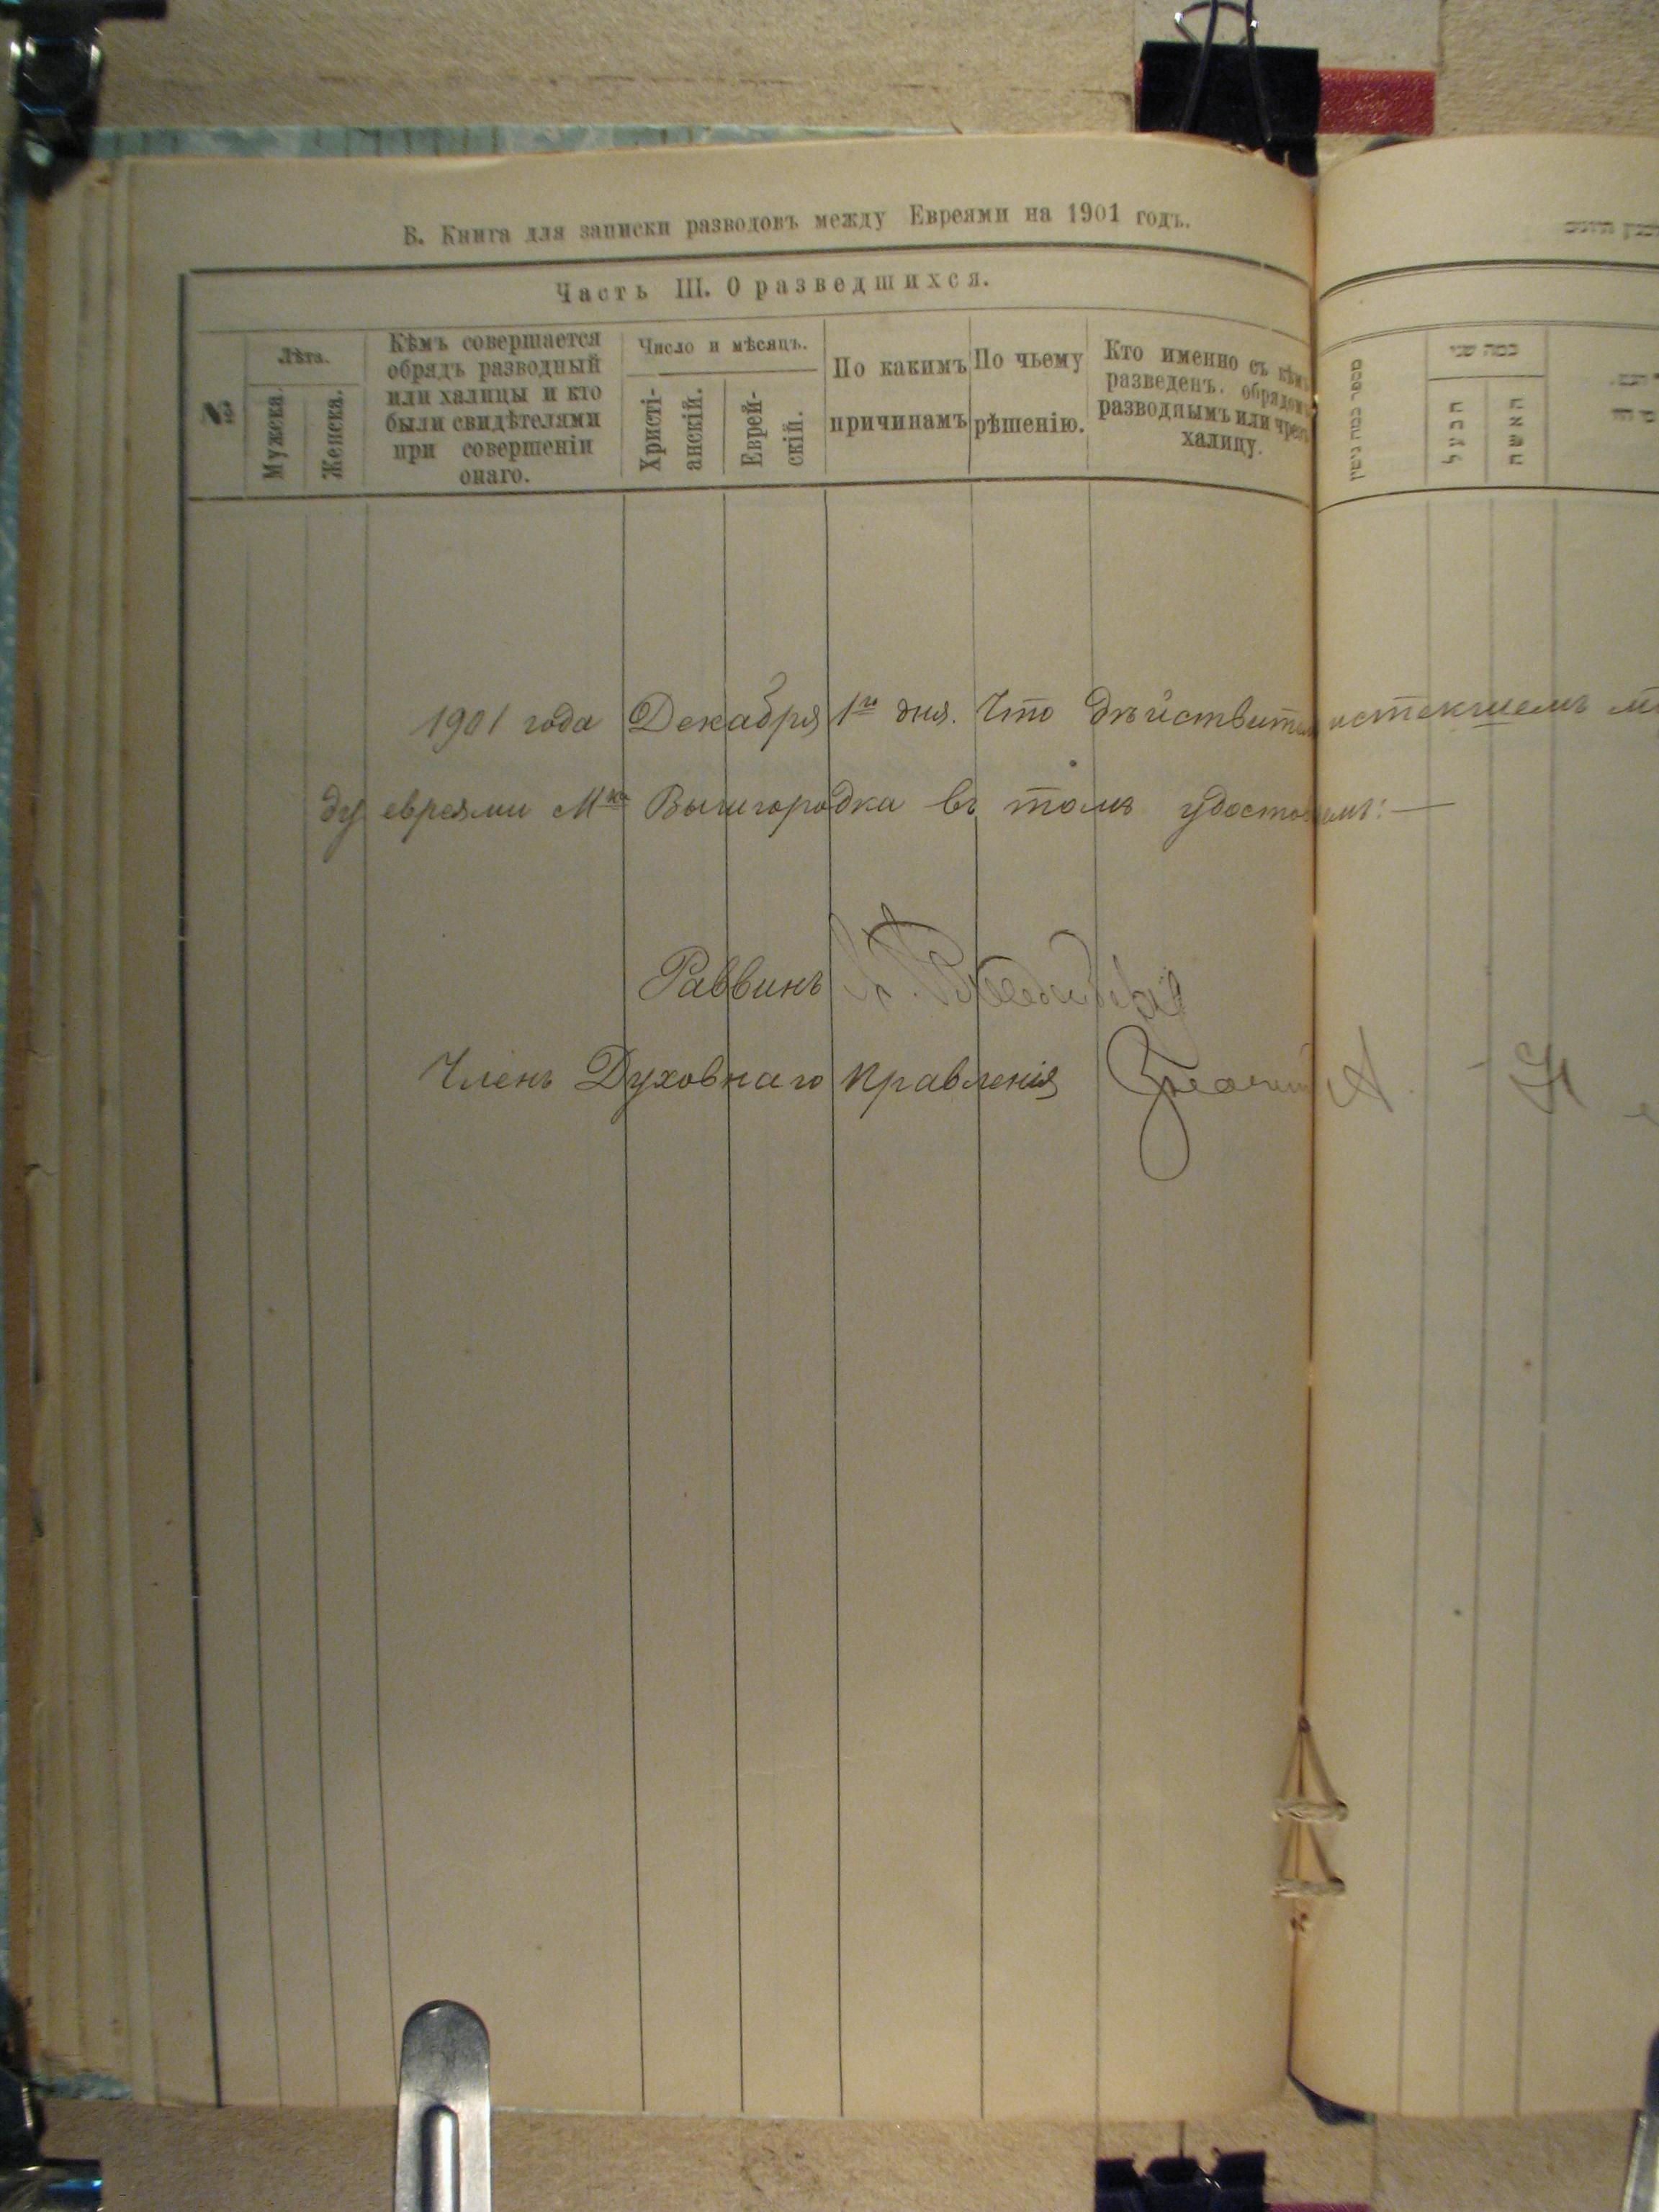 В. Книга для записки разводовъ между Евреями на 1901 годъ.
Часть III. О разведшихся.
№
Лѣта.
Мужска.
Женска.
Кѣмъ совершается
обрядъ разводный
или халицы и кто
были свидѣтелями
при совершеніи
онаго.
Число и мѣсяцъ.
Христі-
анскій.
Еврей-
скій.
По какимъ
причинамъ
По чьему
рѣшенію.
Кто именно съ кѣмъ
разведенъ. обрядомъ
разводнымъ или чрезъ
халицу.
מספר כמה גיטין
כמה שני
הבעל
האשה
1901 года Декабря 1го дня. Что дѣйствител истекшемъ
ду евреями Мка Вышгородка въ томъ удостов
Раввинъ
Членъ Духовнаго правленія